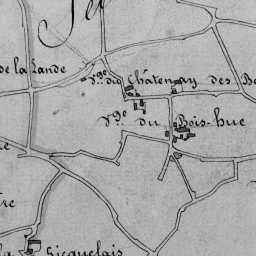 de la Lande
v.ge du Châtenay des B
v.ge du Bois hue
la Sicquelais